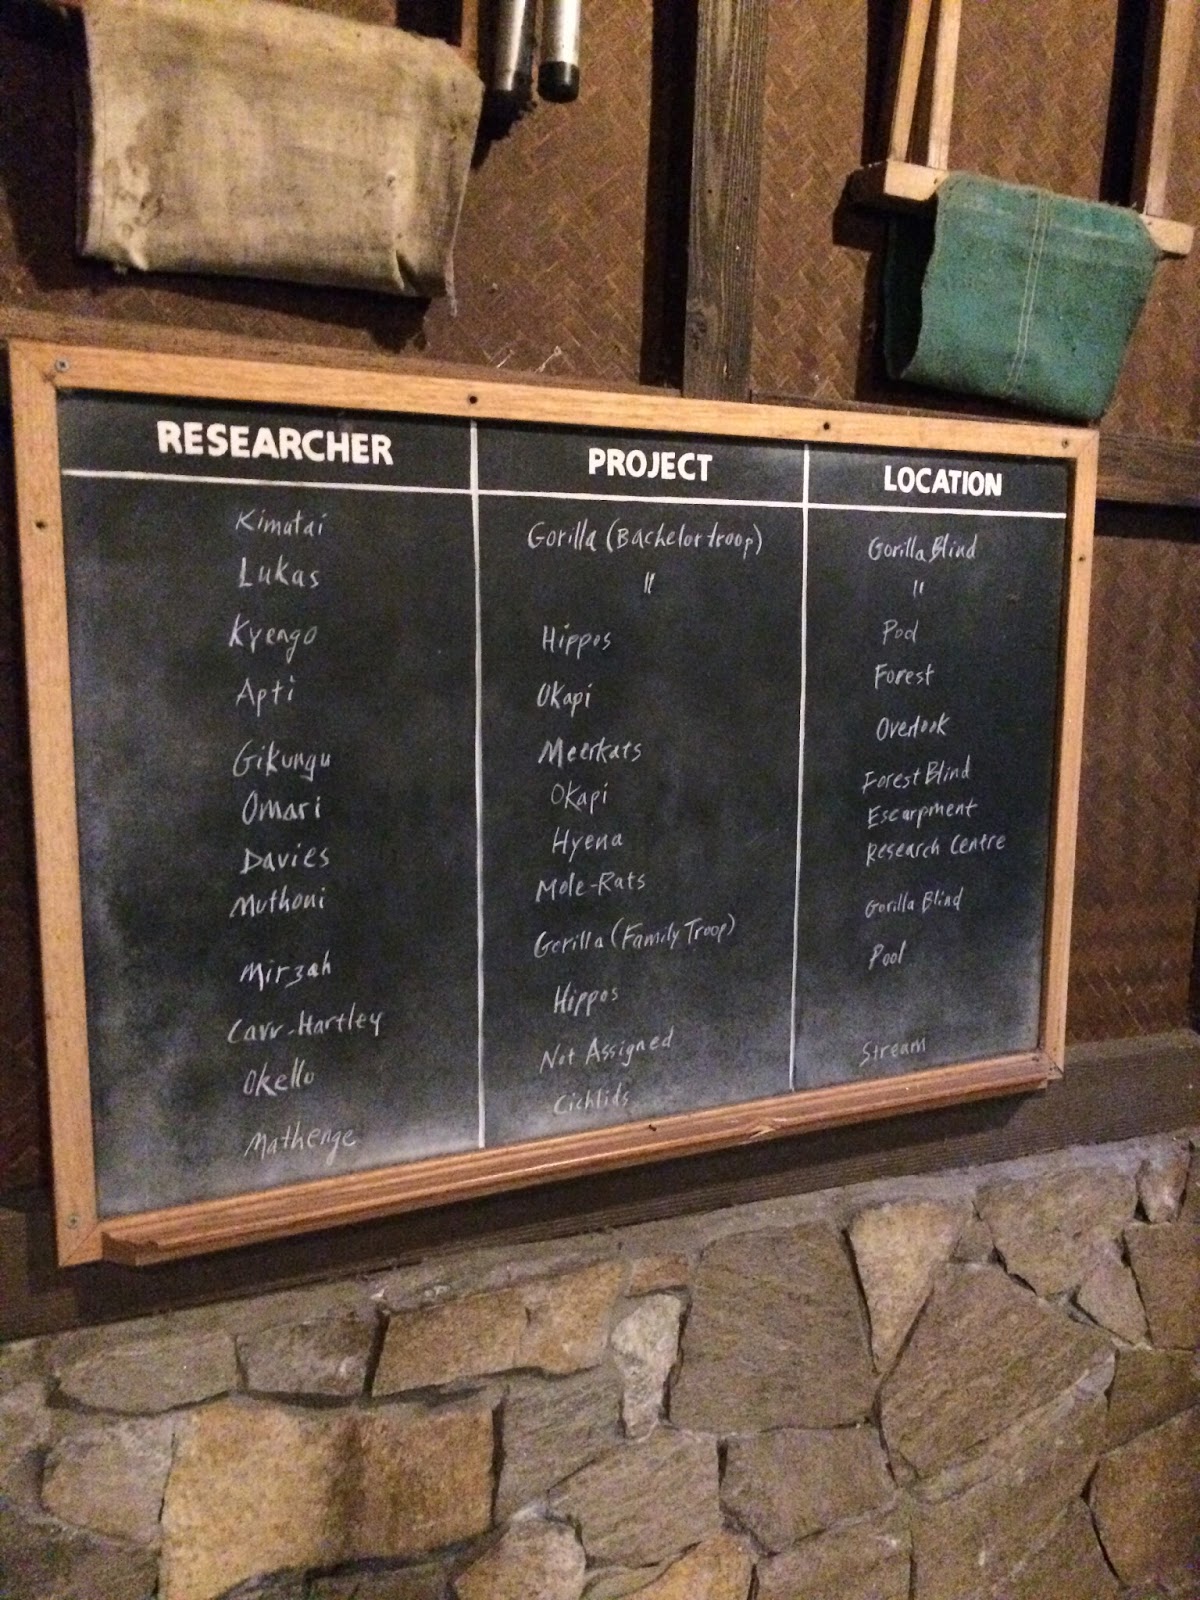 RESEARCHER PROJECT LOCATION
Kimutai Gorilla (Bachelor troop) Gorilla Blind
Lukas " "
Kyengo Hippos Pool
Apti Okapi Forest
Gikungu Meerkats Overlook
Omari Okapi Forest Blind
Davies Hyena Escarpment
Muthoni Mole-Rats Research Centre
Mirzah Gorilla (Family Troop) Gorilla Blind
Carr-Hartley Hippos Pool
Okello Not Assigned
Mathenge Cichlids Stream